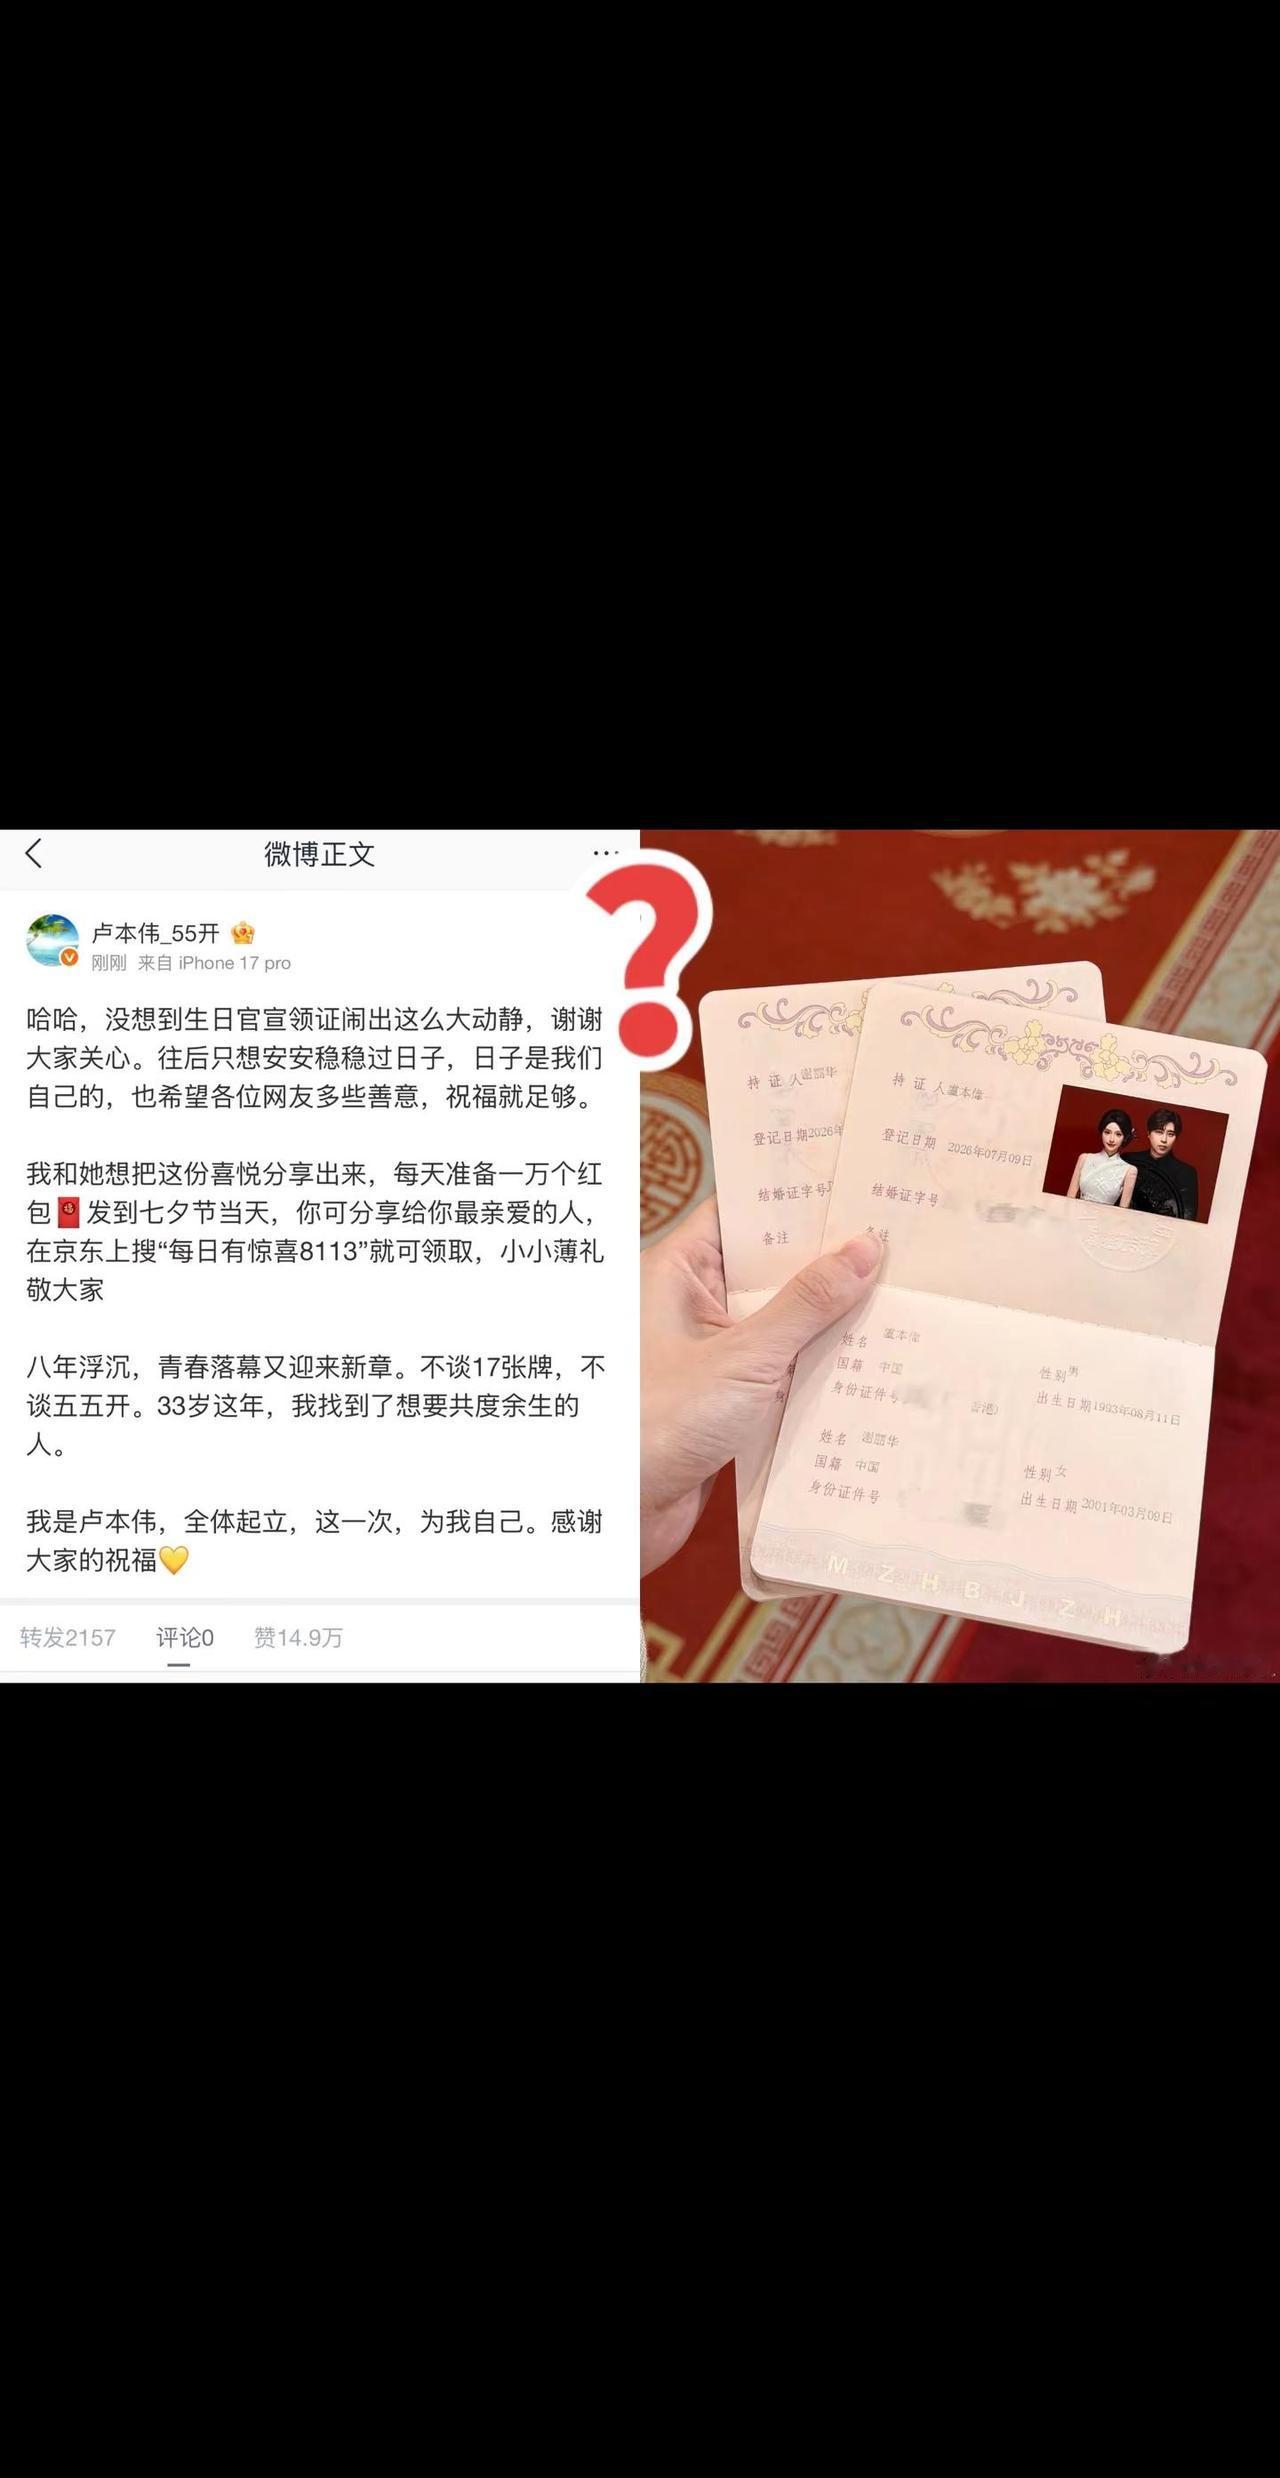 微博正文
卢本伟_55开
刚刚 来自 iPhone 17 pro
哈哈，没想到生日官宣领证闹出这么大动静，谢谢
大家关心。往后只想安安稳稳过日子，日子是我们
自己的，也希望各位网友多些善意，祝福就足够。
我和她想把这份喜悦分享出来，每天准备一万个红
包🧧发到七夕节当天，你可分享给你最亲爱的人，
在京东上搜“每日有惊喜8113”就可领取，小小薄礼
敬大家
八年浮沉，青春落幕又迎来新章。不谈17张牌，不
谈五五开。33岁这年，我找到了想要共度余生的
人。
我是卢本伟，全体起立，这一次，为我自己。感谢
大家的祝福💛
转发2157 评论0 赞14.9万
?
持 证 人
登记日期2026年
结婚证字号
备注
持 证 人盧本偉
登记日期 2026年07月09日
结婚证字号
备注
姓名 盧本偉
国籍 中国
性别男
身份证件号
香港)
出生日期1993年08月11日
姓名
国籍 中国
性别女
身份证件号
出生日期2001年03月09日
M Z H B J Z H